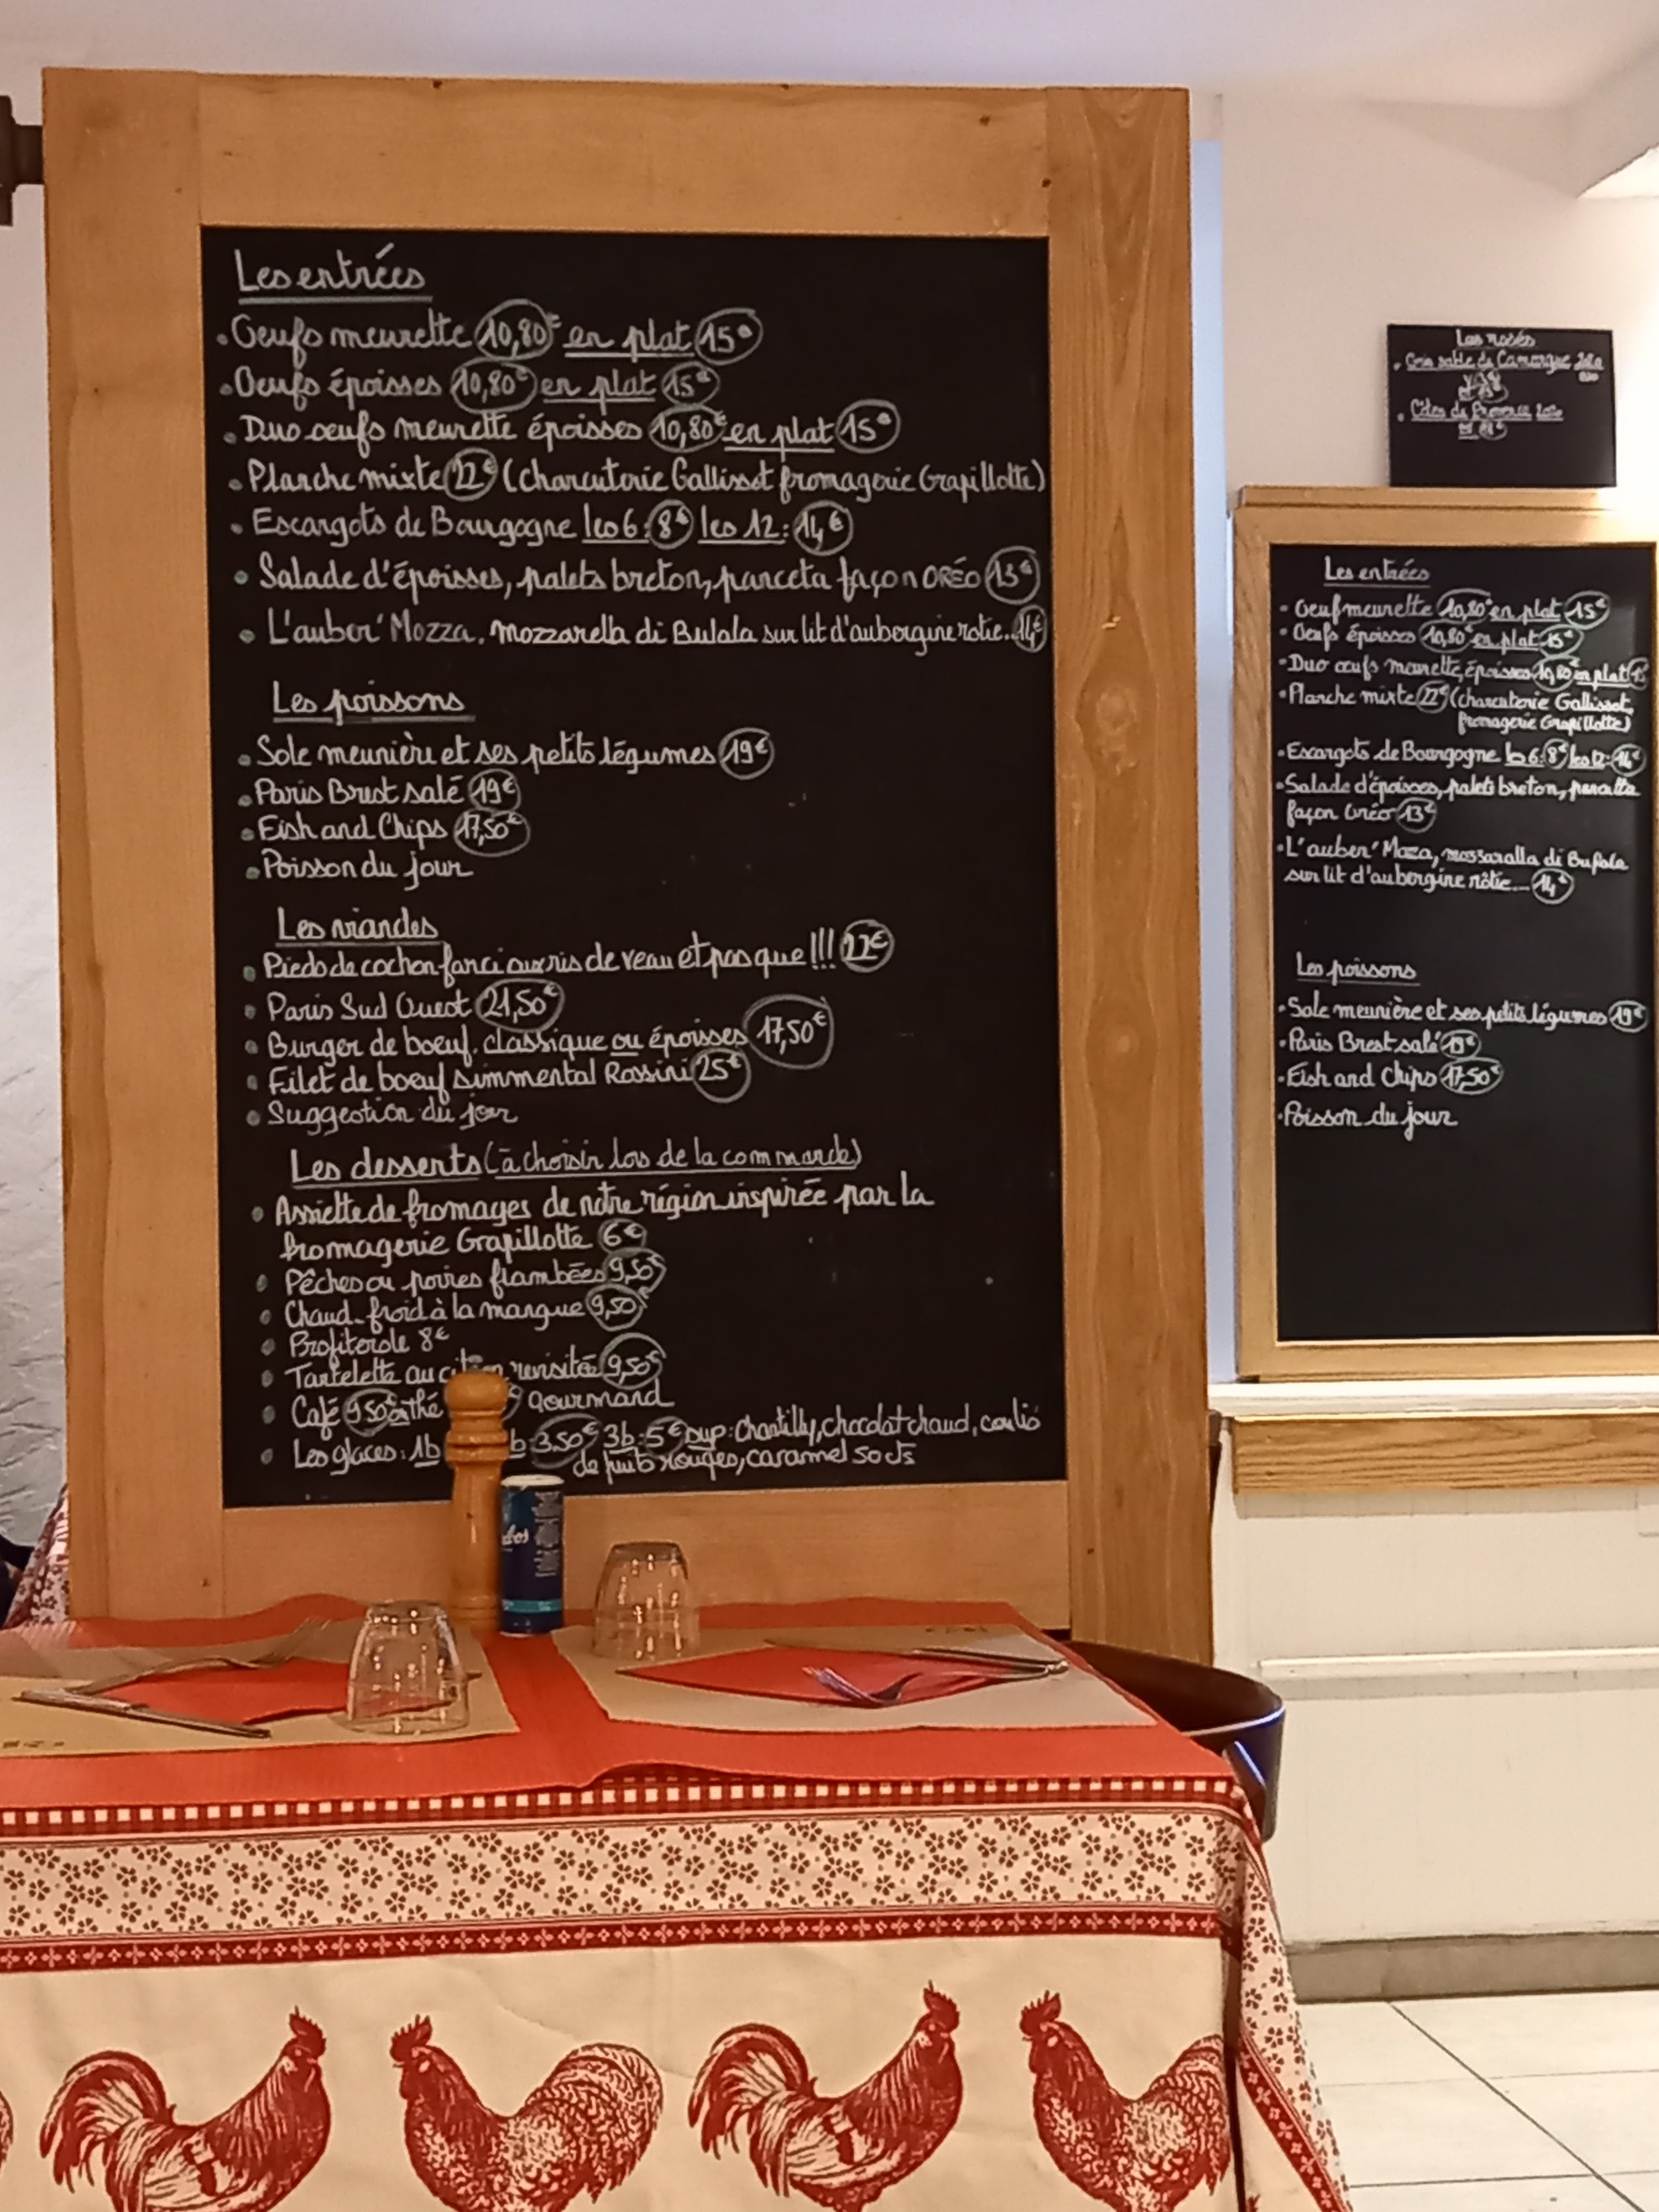 Les entrées
• Oeufs meurette 10,80€ en plat 15€
• Oeufs époisses 10,80€ en plat 15€
• Duo oeufs meurette époisses 10,80€ en plat 15€
• Planche mixte 22€ (charcuterie Gallissot fromagerie Grapillotte)
• Escargots de Bourgogne les 6: 8€ les 12: 14€
• Salade d'époisses, palets breton, panceta façon ORÉO 13€
• L'auber' Mozza. mozzarella di Bulala sur lit d'aubergine rotie... 14€
Les poissons
• Sole meunière et ses petits légumes 19€
• Paris Brest salé 19€
• Fish and Chips 17,50€
• Poisson du jour
Les viandes
• Pieds de cochon farci aux ris de veau et pas que !!! 22€
• Paris Sud Ouest 21,50€
• Burger de boeuf. classique ou époisses 17,50€
• Filet de boeuf simmental Rossini 25€
• Suggestion du jour
Les desserts (à choisir lors de la commande)
• Assiette de fromages de notre région inspirée par la
fromagerie Grapillotte 6€
• Pêches ou poires flambées 9,50€
• Chaud-froid à la mangue 9,50€
• Profiterole 8€
• Tartelette au revisitée 9,50€
• Café 9,50€ thé gourmand
• Les glaces: 1b b: 3,50€ 3b: 5€ sup: chantilly, chocolat chaud, coulis
de fruits rouges, caramel
Les rosés
• sable de Camargue
• Côtes de Provence
Les entrées
• Oeuf meurette 10,80€ en plat 15€
• Oeufs époisses 10,80€ en plat 15€
• Duo oeufs meurette, époisses 10,80 en plat
• Planche mixte 22€ (charcuterie Gallissot,
fromagerie Grapillotte)
• Escargots de Bourgogne les 6: 8€ les 12: 14€
• Salade d'époisses, palets breton,
façon Oréo 13€
• L'auber' Mozza, mozzaralla di Bufala
sur lit d'aubergine rôtie... 14€
Les poissons
• Sole meunière et ses petits légumes 19€
• Paris Brest salé 19€
• Fish and Chips 17,50€
• Poisson du jour